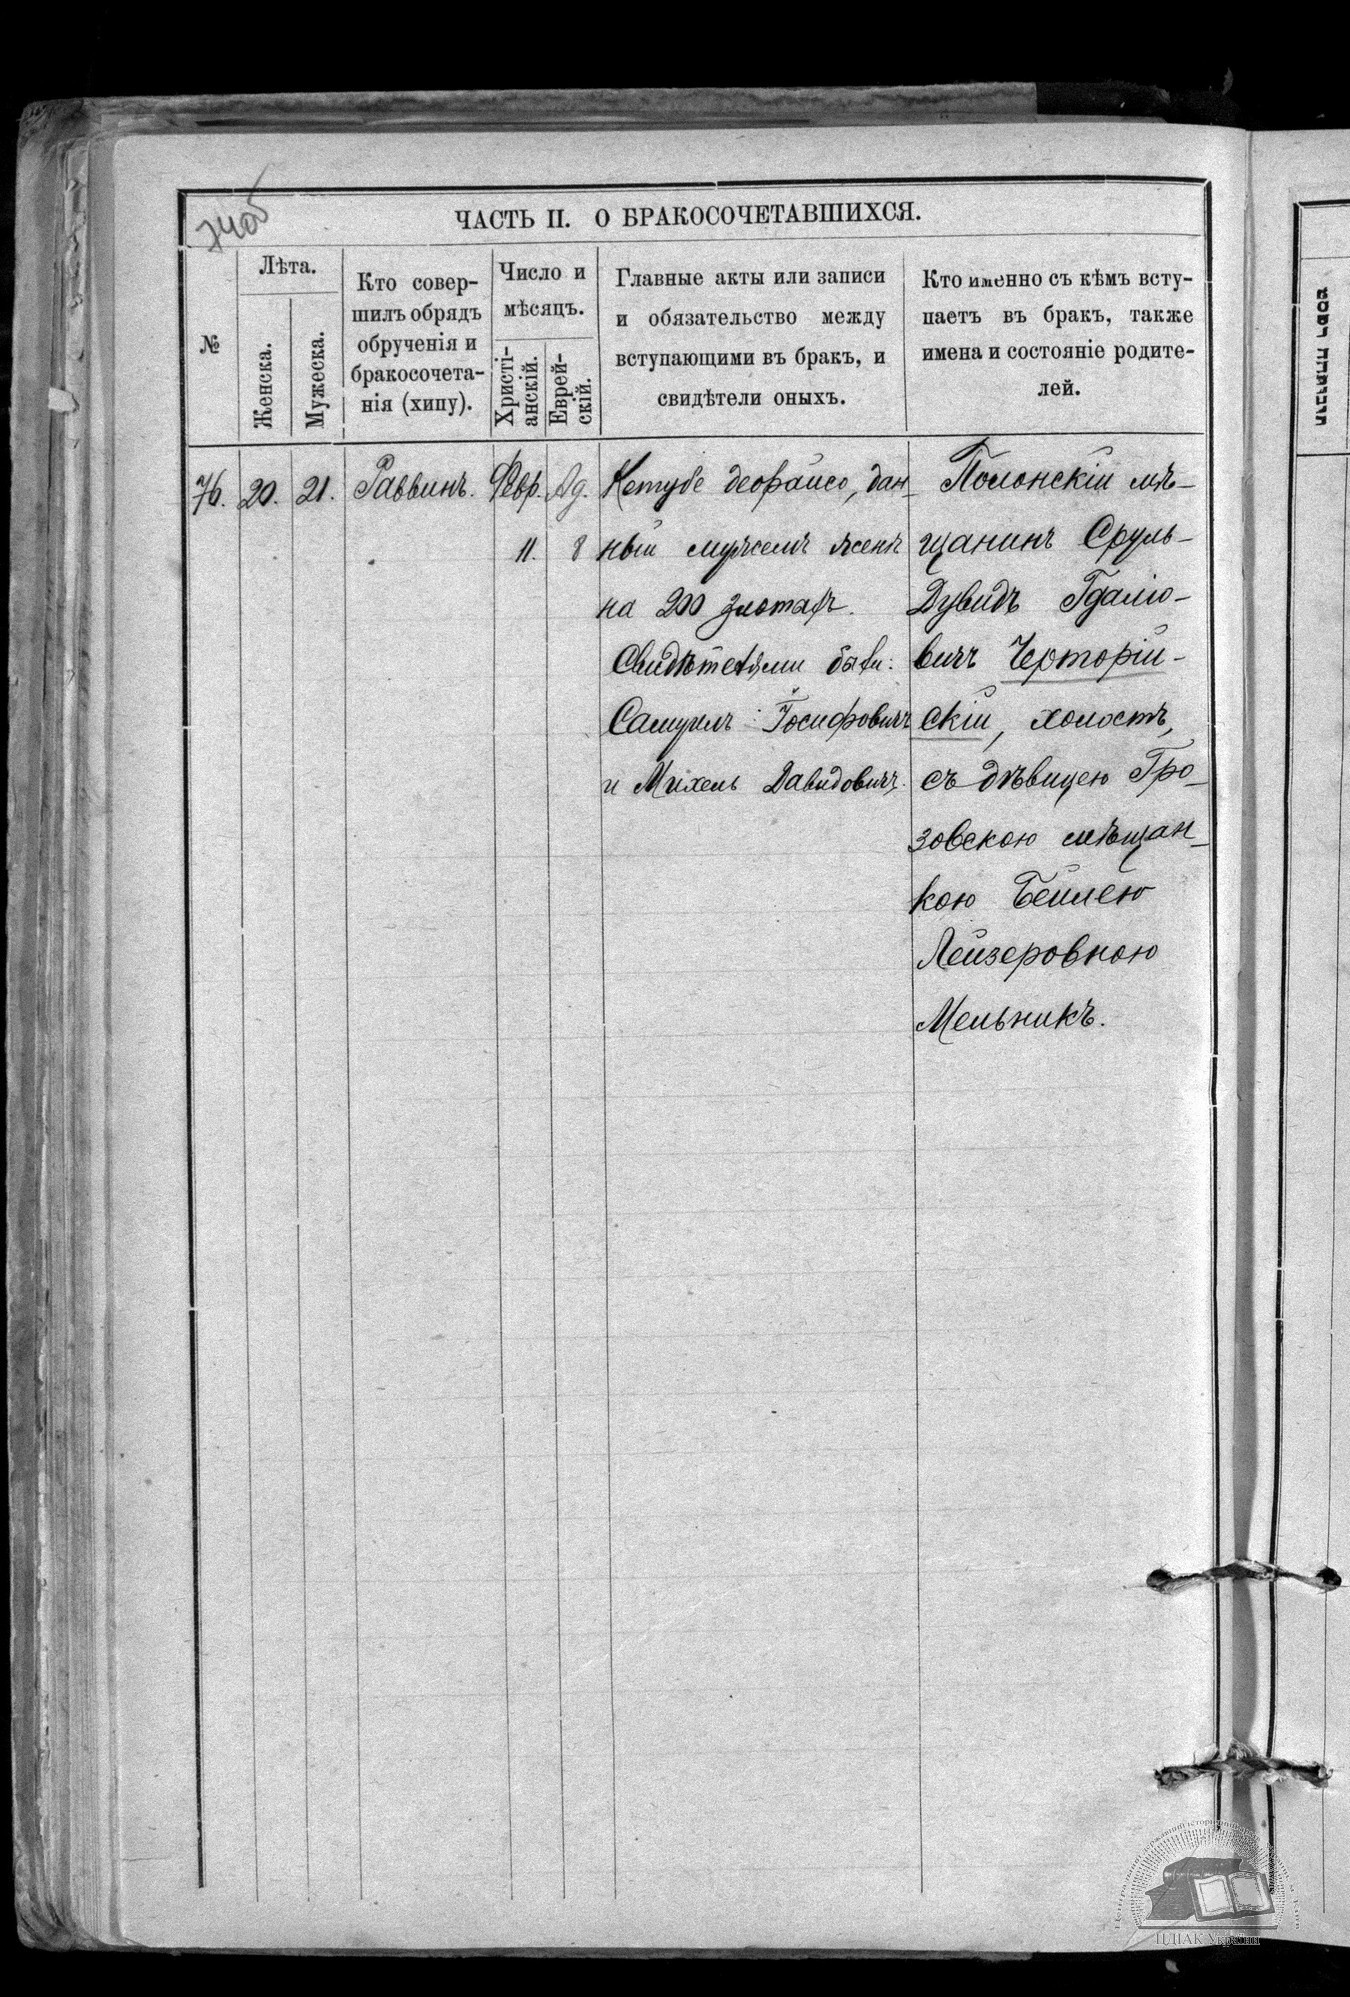 74об
ЧАСТЬ II. О БРАКОСОЧЕТАВШИХСЯ.
№
Лѣта.
Женска.
Мужеска.
Кто совер-
шилъ обрядъ
обрученія и
бракосочета-
нія (хипу).
Число и
мѣсяцъ.
Христі-
анскій.
Еврей-
скій.
Главные акты или записи
и обязательство между
вступающими въ бракъ, и
свидѣтели оныхъ.
Кто именно съ кѣмъ всту-
паетъ въ бракъ, также
имена и состояніе родите-
лей.
76.
20.
21.
Раввинъ.
Февр.
11.
Ад.
8
Кетубе деорайсо, дан-
ный мужемъ женѣ
на 200 злотыхъ.
Свидѣтелями были:
Самуилъ Іосифовичъ
и Михель Давидовичъ.
Полонскій мѣ-
щанинъ Сруль-
Дувидъ Гдаліо-
вичъ Черторій-
скій, холостъ,
съ дѣвицею Гро-
зовскою мѣщан-
кою Бейлею
Лейзеровною
Мельникъ.
ЦДІАК України